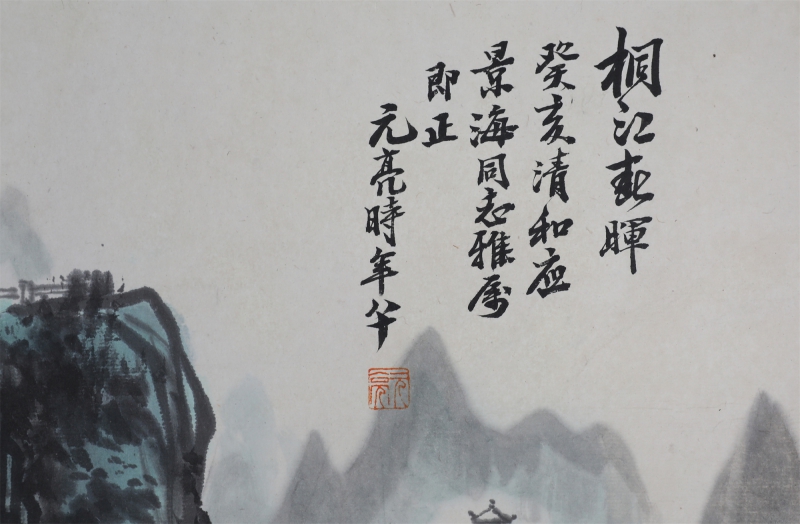 桐江春暉
癸亥清和应
景海同志雅属
即正
元亮時年八十
元亮